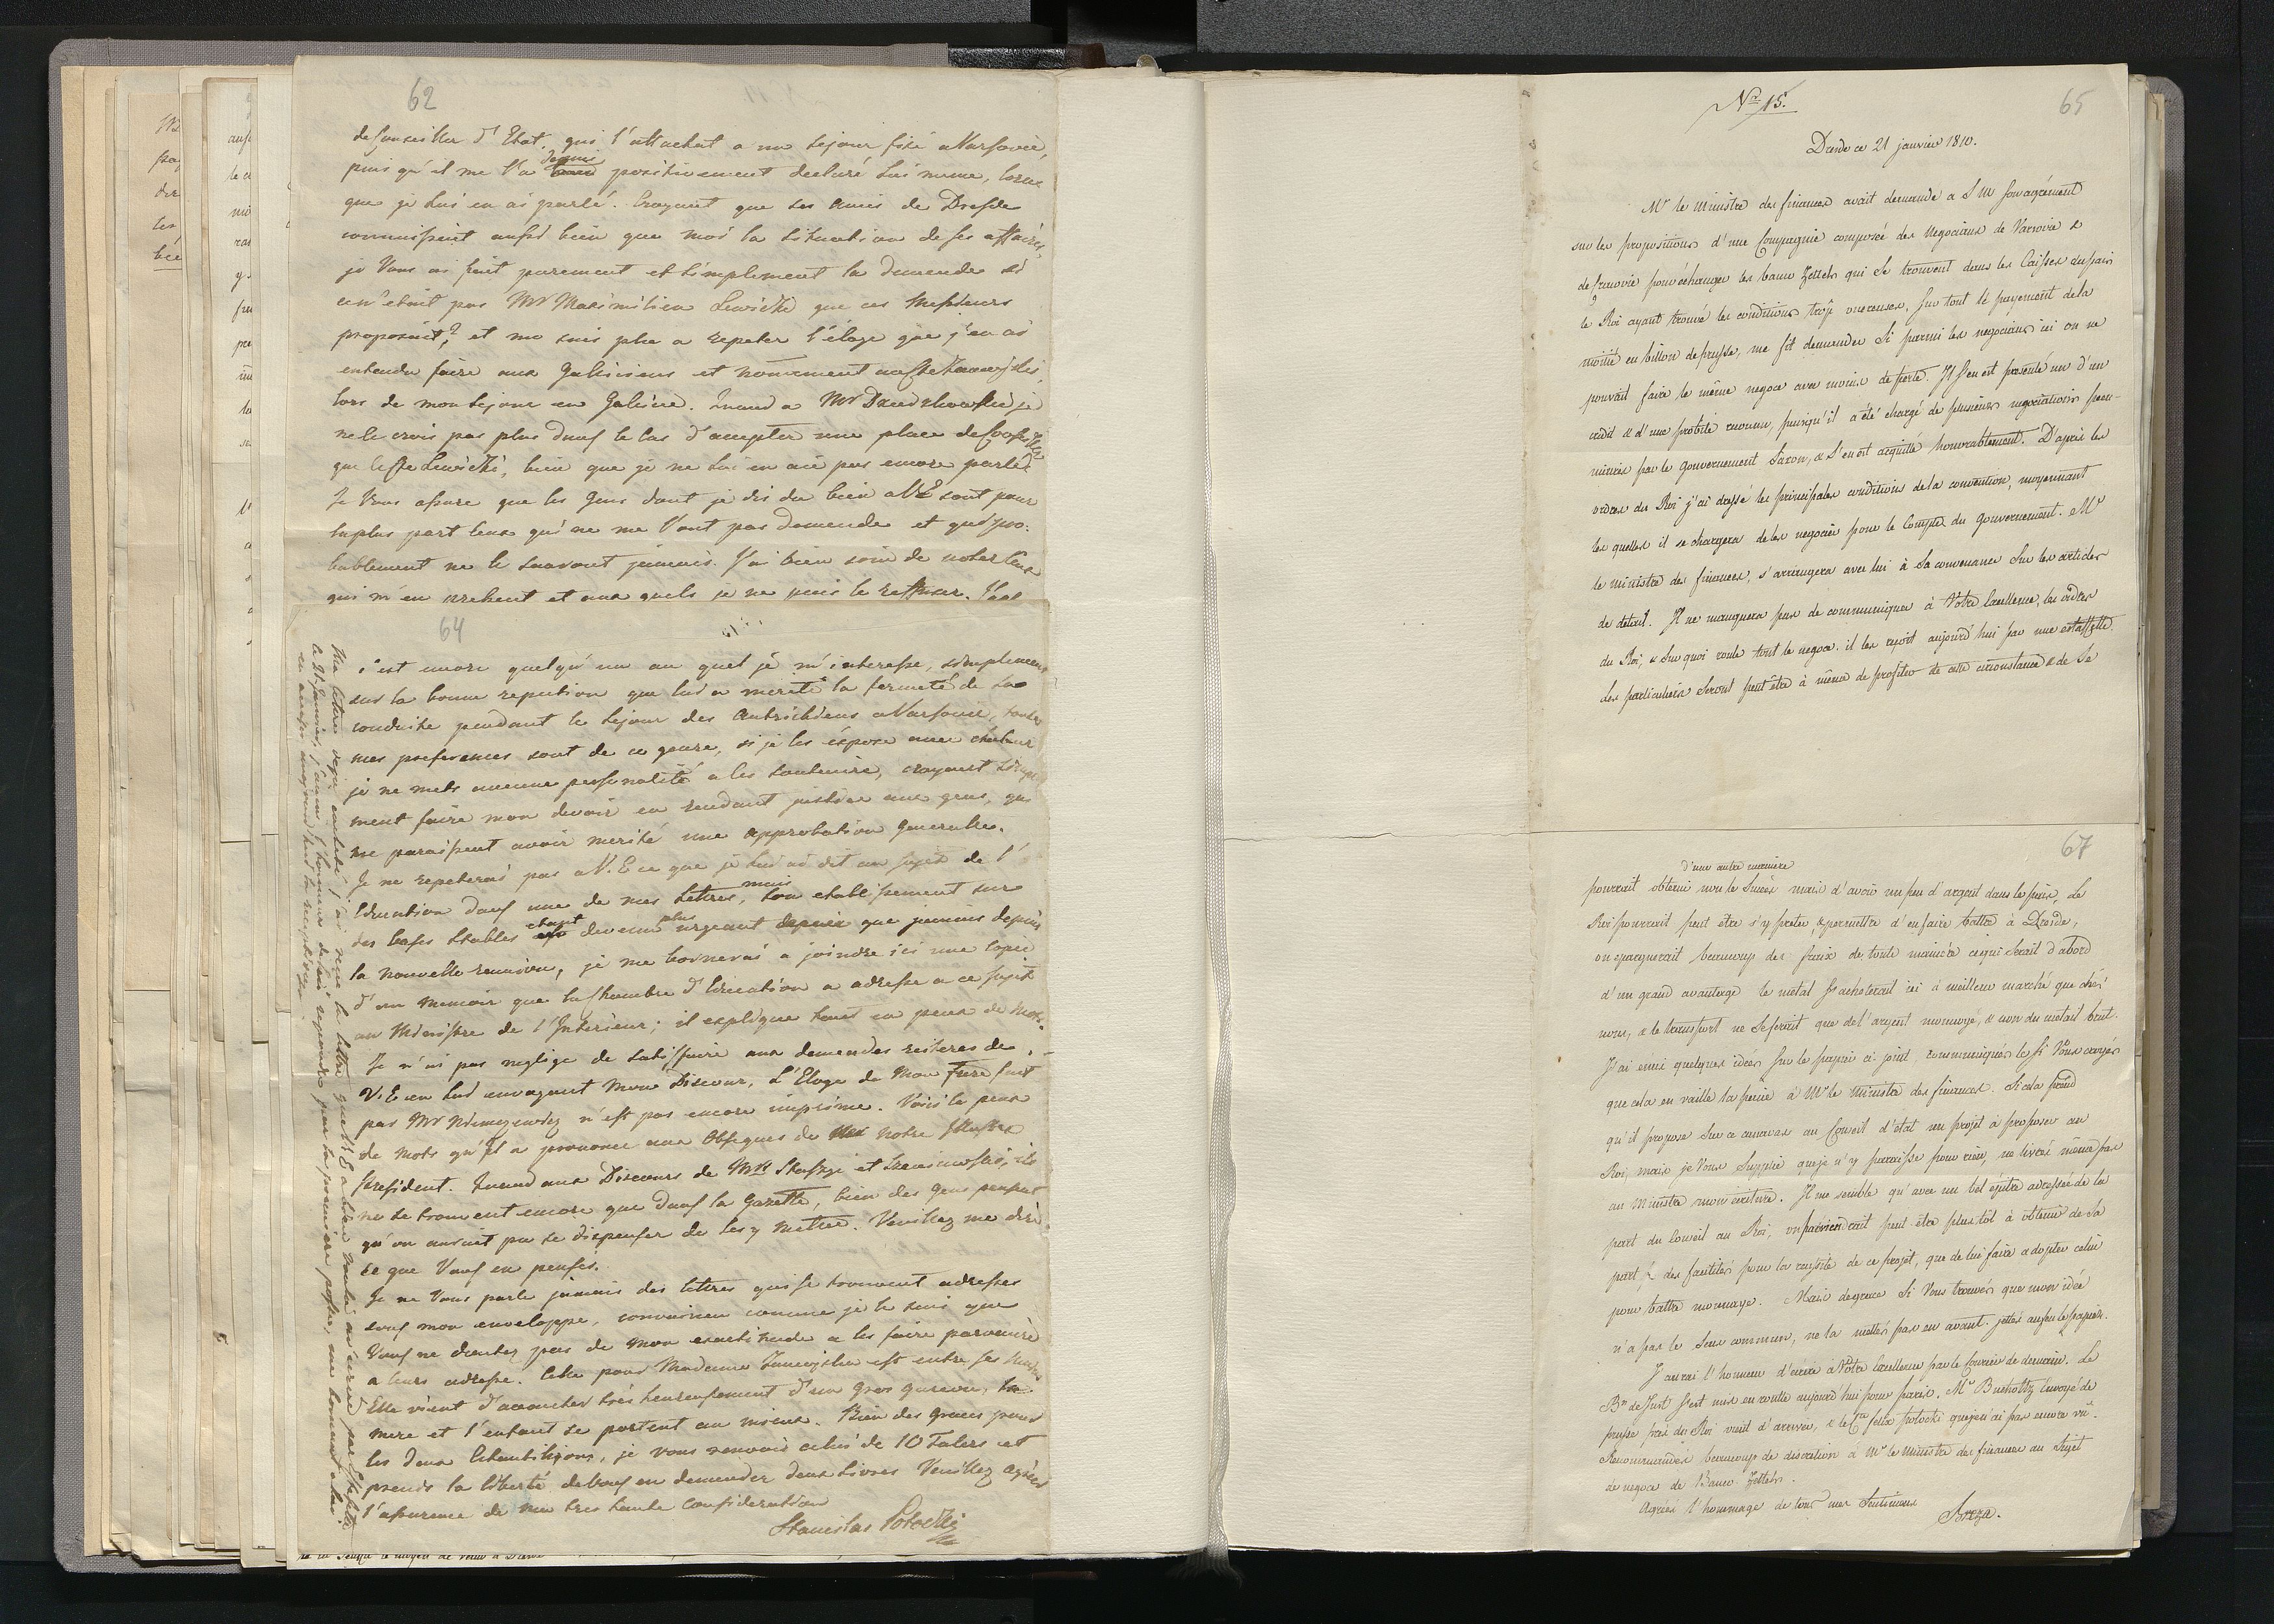 62
de Conseiller d'Etat, qui l'attachat a un sejour fixé a Varsovie,
puis qu'il me l'a depuis positivement declaré lui meme, lors
que je lui en ai parlé. Croyant que ses amis de Dresde
connaissent aussi bien que moi la situation de ses affaires,
je Vous ai fait purement et simplement la demande si
ce n'etoit pas Mr Maximilien Lewicki que ces Messieurs
proposoient? et me suis plu a repeter l'éloge que j'en ai
entendu faire aux Galiciens et nommement au Cte
lors de mon sejour en Galicie. Quand a Mr je
ne le crois pas plus dans le cas d'accepter une place de Conseiller
que le Cte Lewicki, bien que je ne lui en aie pas encore parlé.
Je Vous assure que les Gens dont je dis du bien a V.E sont pour
la plus part ceux qui ne me l'ont pas demandé et qui pro-
bablement ne le sauront jamais. J'ai bien soin de noter ceux
qui m'en prehent et aux quels je ne puis le reffuser.
64
c'est encore quelqu'un au quel je m'interesse, simplement
sur la bonne repution que lui a merité la fermeté de sa
conduite pendant le sejour des Autrichiens a Varsovie, toutes
mes preferences sont de ce genre, si je les expose avec chaleur
je ne mets aucune personalité a les soutenire, croyant simple
ment faire mon devoir en rendant justice aux gens, qui
me paraissent avoir merité une approbation generale.
Je ne repeterai pas a V.E ce que je lui ai dit au sujet de l'
Education dans une de mes lettres, mais son etablissement sur
des bases stables etant devenu plus urgeant que jamais depuis
la nouvelle reunion, je me bornerai a joindre ici une copie
d'un memoir que la Chambre d'Education a adressé a ce sujet
au Ministre de l'Interieur; il explique tout en peux de mots.
Je n'ai pas negligé de satisfaire aux demandes reiteres de
V.E en lui envoyant mon Discour, L'Eloge de Mon frere fait
par Mr Niemcewicz n'est pas encore imprimé. Voici le peux
de mots qu'il a prononcé aux Obseques de notre Illustre
President. Quand aux Discours de Mrs Staszyc et ils
ne se trouvent encore que dans la Gazette, bien des Gens pensent
qu'on auroit pu se dispenser de les y mettre. Veuillez me dire
ce que Vous en pensés.
Je ne Vous parle jamais des lettres qui se trouvent adresses
sous mon enveloppe, convaincu comme je le suis que
Vous ne doutez pas de mon exactitude a les faire parvenire
a leurs adresse. Celle pour Madame est entre ses mains
Elle vient d'accoucher très heureusement d'un Gros garcon, la
mere et l'enfant se portent au mieux. Bien des graces pour
les deux Echantillions, je vous renvois celui de 10 Talers et
prends la liberté de Vous en demender deux livres Veuillez agréer
l'assurance de ma tres haute consideration
Stanislas Potocki
Ma lettre deja cacheté j'ai reçu la lettre que V.E a bien voulu m'ecrire par
le 21 Janvier, j'aurai l'honneur de lui repondre par la premiere poste, me bornant a lui
en accuser aujourd'hui la reception.
No 15.
65
Dresde ce 21 janvier 1810.
Mr le Ministre des finances avait demandé a S M son agrément
sur les propositions d'une Compagnie composée des Negocians de Varsovie &
de Cracovie pour échanger les banco Zettels qui se trouvent dans les Caisses du païs
le Roi ayant trouvé les conditions trop onereuses, sur tout le payement de la
moitié en billon de prusse, me fit demander si parmi les negocians ici on ne
pouvait faire le même negoce avec moins de perte. Il s'en est presenté un d'un
credit & d'une probité reconnu, puisqu'il a été chargé de plusieurs negociations pecu-
niaires par le gouvernement Saxon, & s'en est acquitté honorablement. D'après les
ordres du Roi j'ai dressé les principales conditions de la convention, moyennant
les quelles il se chargera de les negocier pour le Compte du Gouvernement. Mr
le ministre des finances, s'arrangera avec lui à sa convenance sur les articles
de detail. Il ne manquera pas de communiquer à Votre Excellence, les ordres
du Roi, & sur quoi roule tout le negoce. il les reçoit aujourd'hui par une estaffette.
Les particuliers seront peut être à même de profiter de cette circonstance & de se
67
d'une autre maniere
pourrait obtenir non le Succès mais d'avoir un peu d'argent dans le païs, Le
Roi pourrait peut etre s'y preter, & permettre d'en faire battre à Dresde,
on epargnerait beaucoup des fraix de toute maniere ce qui serait d'abord
d'un grand avantage le metal s'acheterait ici à meilleur marché que chés
nous, & le transport ne se ferait que de l'argent monnoyé, & non du métail brut.
J'ai emis quelques idées sur le papier ci-joint communiqués le si Vous croyés
que cela en vaille la peine à Mr le Ministre des finances. Si cela prend
qu'il propose sur ce canevas au Conseil d'état un projet à proposer au
Roi, mais je Vous Supplie que je n'y paraisse pour rien, ne livrés même pas
au Ministre mon ecriture. Il me semble qu'avec un bel epitre adressée de la
part du Conseil au Roi, on parviendrait peut être plus tôt à obtenir de sa
part des facilités pour la reussite de ce projet, que de lui faire adopter celui
pour battre monnaye. Mais de grace Si Vous trouvés que mon idée
n'a pas le sens commun, ne la mettés pas en avant. jettés au feu le papier.
J'aurai l'honneur d'ecrire à Votre Excellence par le Courier de demain. Le
Bn de Just s'est mis en route aujourd'hui pour paris. Mr Bucholtz Envoyé de
prusse près du Roi vient d'arriver, & le Cte felix potocki que je n'ai pas encore vû.
Recommandés beaucoup de discretion à Mr le Ministre des finances au Sujet
de negoce de Banco-Zettels.
Agréés l'hommage de tous mes Sentimens
Breza.